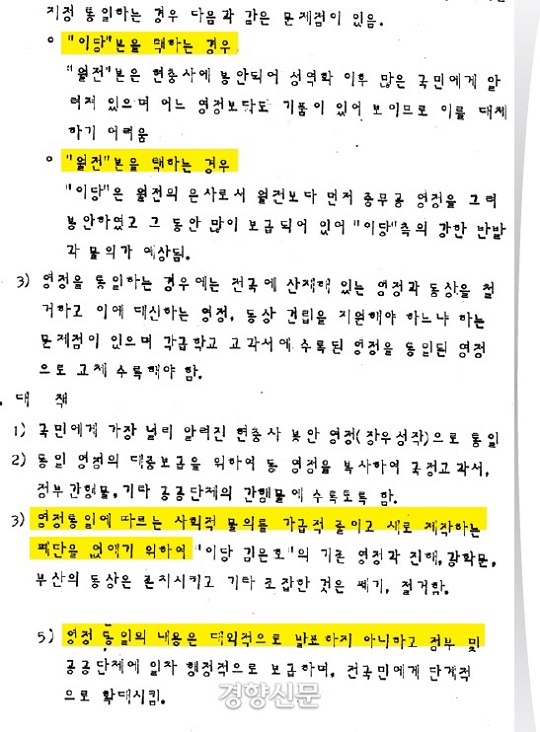 지정 통일하는 경우 다음과 같은 문제점이 있음.
° "이당"본을 택하는 경우
"월전"본은 현충사에 봉안되어 성역화 이후 많은 국민에게 알
려져 있으며 어느 영정보다도 기품이 있어 보이므로 이를 대체
하기 어려움
° "월전"본을 택하는 경우
"이당"은 월전의 은사로서 월전보다 먼저 충무공 영정을 그려
봉안하였고 그 동안 많이 보급되어 있어 "이당"측의 강한 반발
과 물의가 예상됨.
3) 영정을 통일하는 경우에는 전국에 산재해 있는 영정과 동상을 철
거하고 이에 대신하는 영정, 동상 건립을 지원해야 하느냐 하는
문제점이 있으며 각급학교 교과서에 수록된 영정을 통일된 영정
으로 교체 수록해야 함.
. 대 책
1) 국민에게 가장 널리 알려진 현충사 봉안 영정(장우성작)으로 통일
2) 통일 영정의 대중보급을 위하여 동 영정을 복사하여 국정교과서,
정부간행물, 기타 공공단체의 간행물에 수록토록 함.
3) 영정통일에 따르는 사회적 물의를 가급적 줄이고 새로 제작하는
폐단을 없애기 위하여 "이당 김은호"의 기존 영정과 진해, 광화문,
부산의 동상은 존치시키고 기타 조잡한 것은 폐기, 철거함.
5) 영정 통일의 내용은 대외적으로 발표하지 아니하고 정부 및
공공단체에 일차 행정적으로 보급하며, 전국민에게 단계적
으로 확대시킴.
경향신문